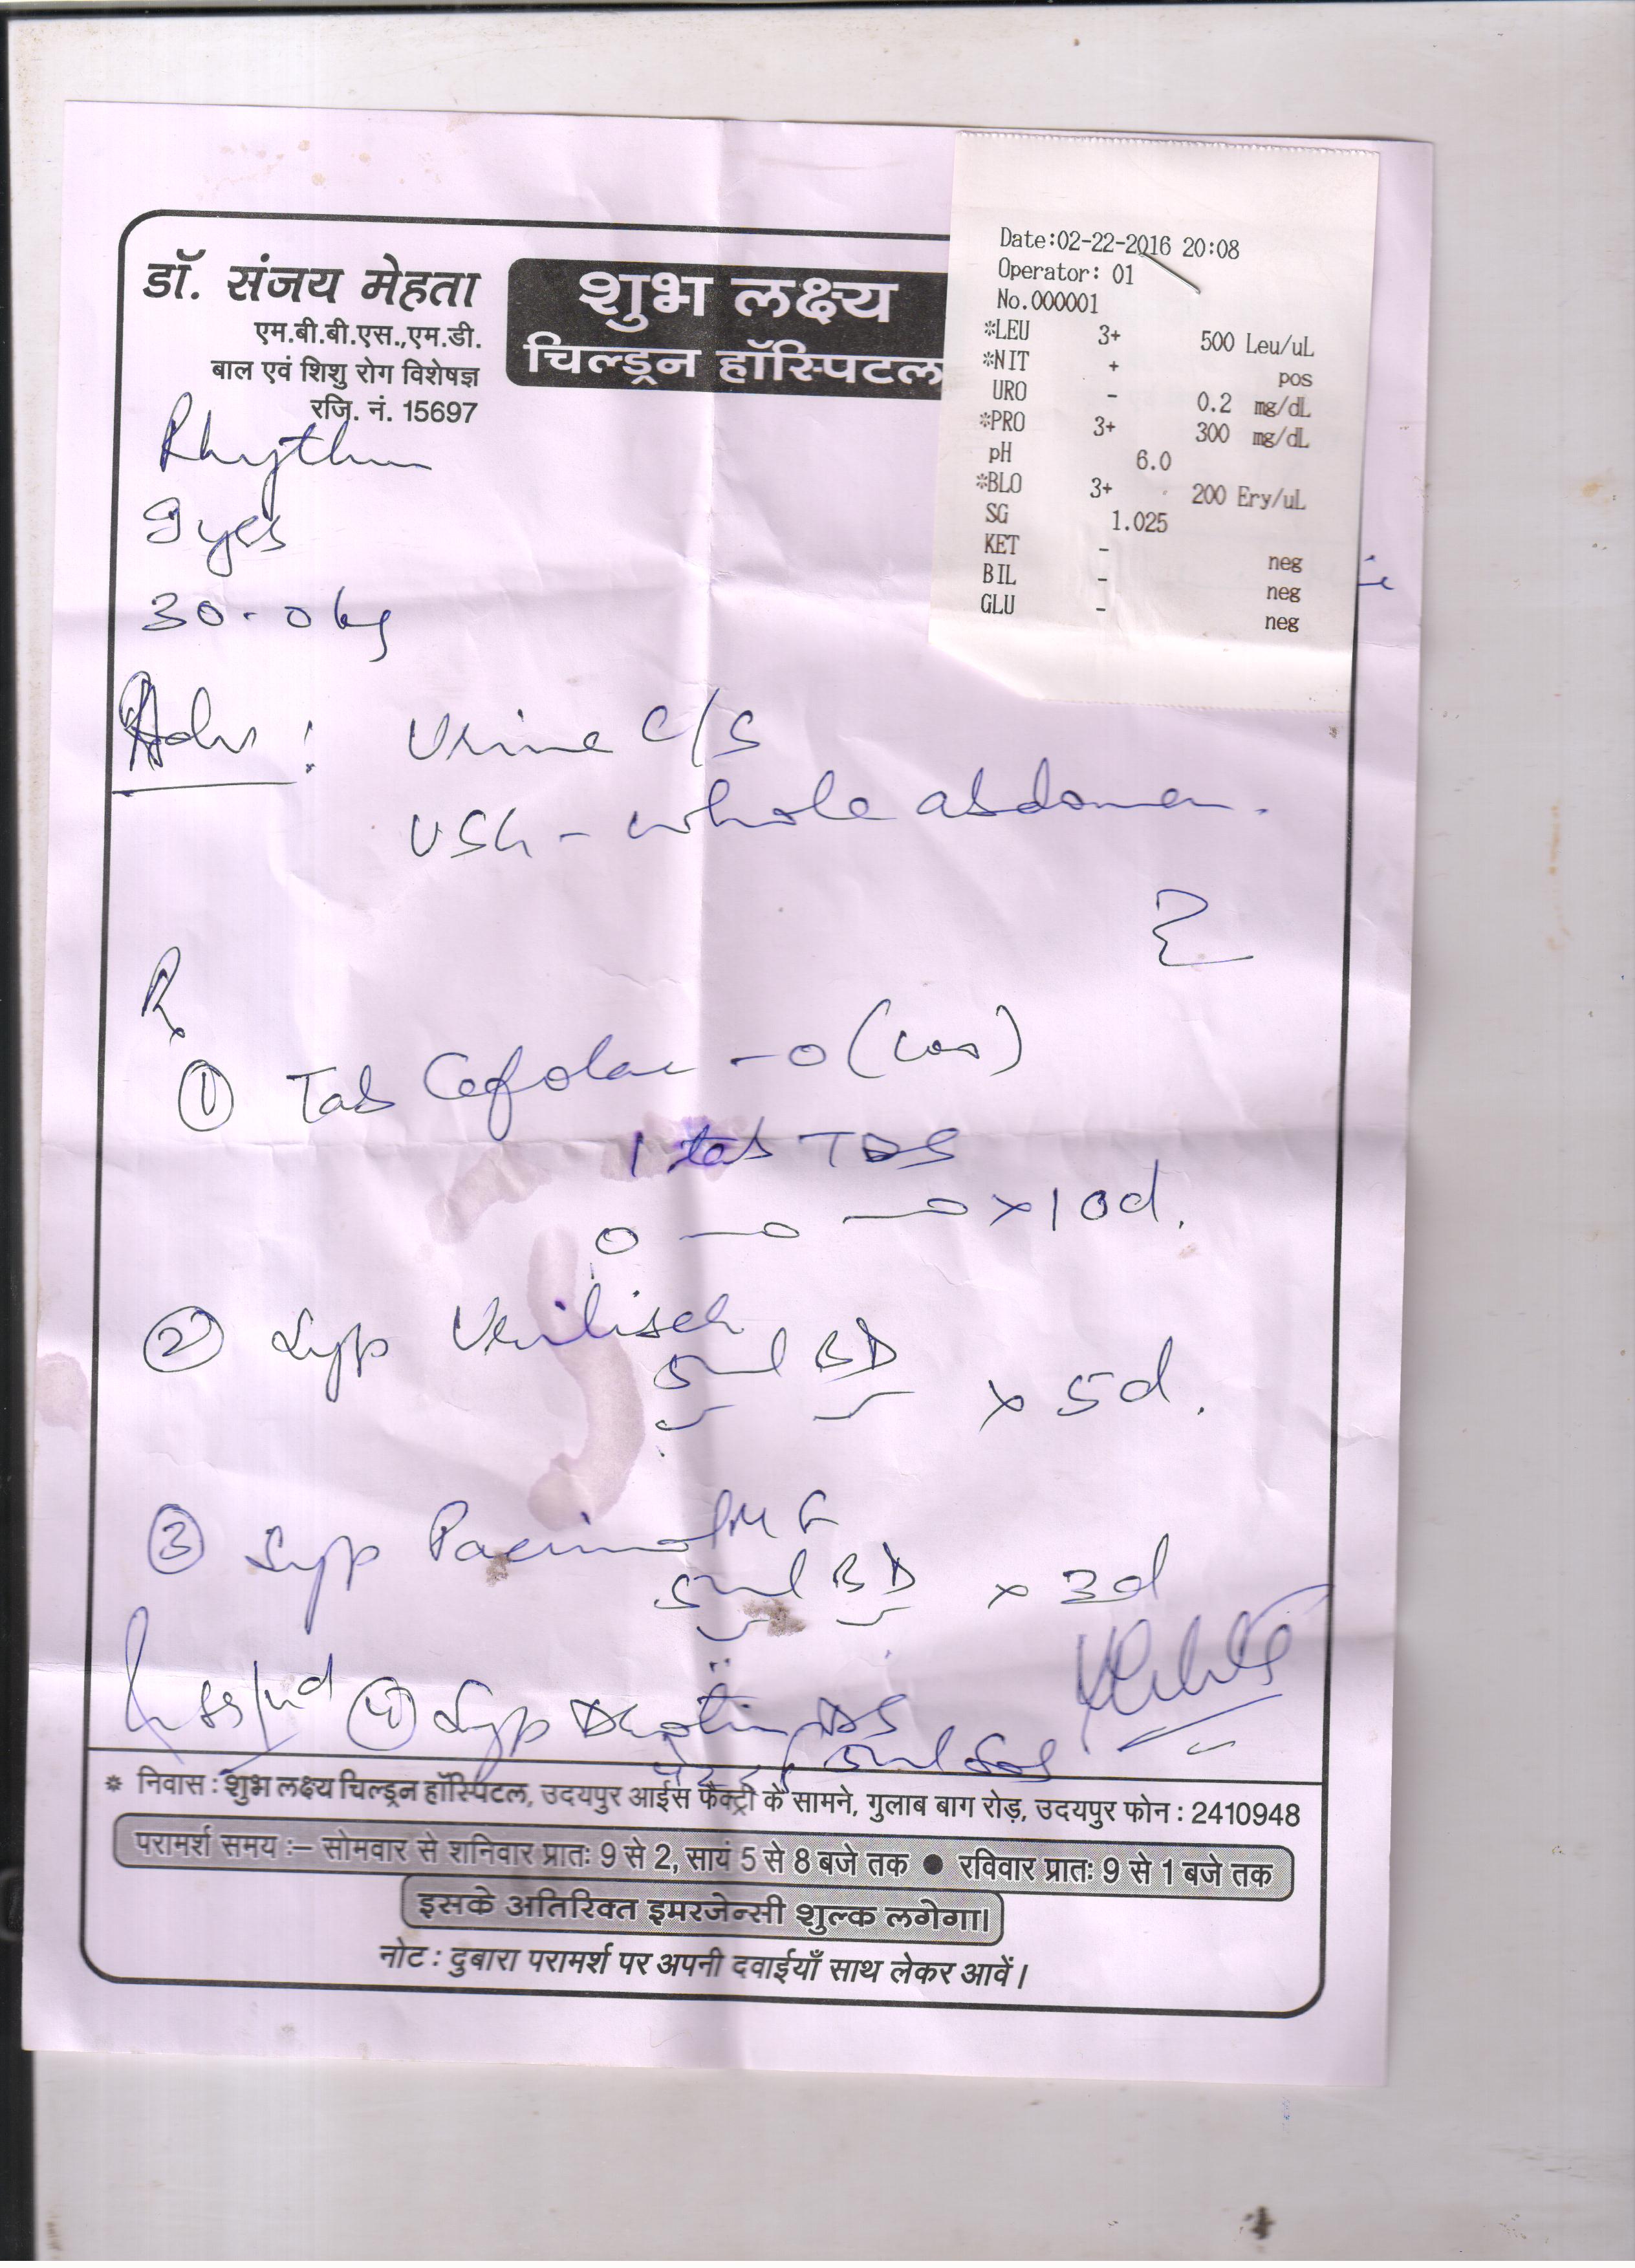 डॉ. संजय मेहता
एम.बी.बी.एस.,एम.डी.
बाल एवं शिशु रोग विशेषज्ञ
रजि. नं. 15697
शुभ लक्ष्य
चिल्ड्रन हॉस्पिटल
Date:02-22-2016 20:08
Operator: 01
No.000001
*LEU 3+ 500 Leu/uL
*NIT + pos
URO - 0.2 mg/dL
*PRO 3+ 300 mg/dL
pH 6.0
*BLO 3+ 200 Ery/uL
SG 1.025
KET - neg
BIL - neg
GLU - neg
Rhythm
9 yrs
30.0 kg
Adv : Urine C/S
USG - whole abdomen.
Rx
① Tab
1 tab TDS
x 10d.
② Syp
5ml BD x 5d.
③ Syp
5ml BD x 3d
④ Syp
5ml
* निवास : शुभ लक्ष्य चिल्ड्रन हॉस्पिटल, उदयपुर आईस फैक्ट्री के सामने, गुलाब बाग रोड़, उदयपुर फोन : 2410948
परामर्श समय :– सोमवार से शनिवार प्रातः 9 से 2, सायं 5 से 8 बजे तक ● रविवार प्रातः 9 से 1 बजे तक
इसके अतिरिक्त इमरजेन्सी शुल्क लगेगा।
नोट : दुबारा परामर्श पर अपनी दवाईयाँ साथ लेकर आवें।